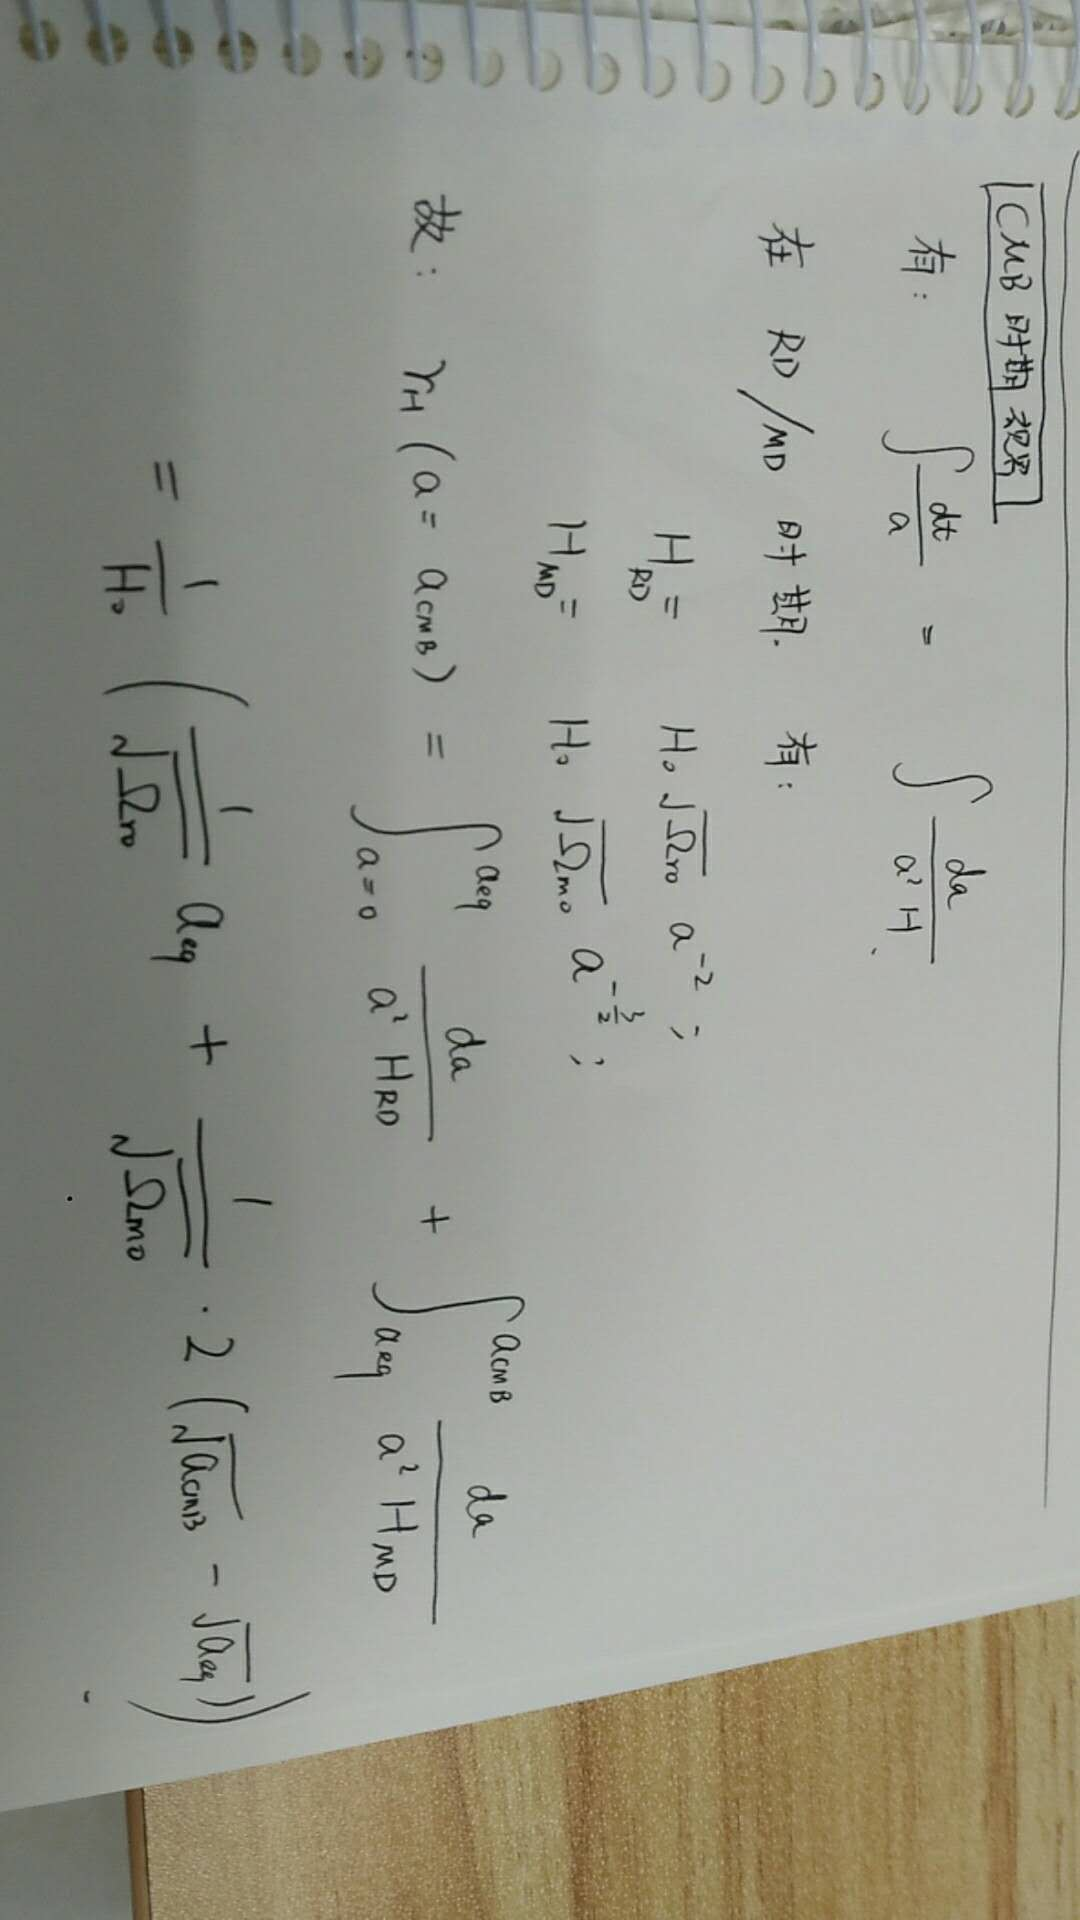 CMB时期视界
有: ∫ dt/a = ∫ da/a²H.
在 RD/MD 时期. 有:
H_RD = H₀ √Ω_r0 a^-2 ;
H_MD = H₀ √Ω_m0 a^-3/2 ;
故: r_H (a = a_CMB) = ∫_{a=0}^{a_eq} da/a²H_RD + ∫_{a_eq}^{a_CMB} da/a²H_MD
= 1/H₀ ( 1/√Ω_r0 a_eq + 1/√Ω_m0 · 2 (√a_CMB - √a_eq) ) .